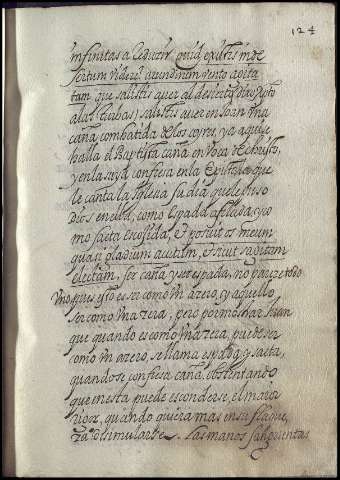 124
infinitas a reduzir, quid existis in de
sertum videre? arundinem vento agita
tam que salistis a ver al desierto (dixo Xpto
a las turbas) salistis a ver en Joan una
caña combatida de los ayres, ya aqui se
halla el Baptista caña en voca de Christo,
y en la suya confiesa en la Epistola que
le canta la Iglesia su dia que le puso
Dios en ella, como Espada afilada, y co
mo saeta escojida, Et posuit os meum
quasi gladium acutum, et sicut sagitam
electam, ser caña y ser espada, no pareze todo
uno pues esto es ser como un azero, y aquello
ser como una zera, pero por mostrar Juan
que quando es como una zera, puede ser
como un azero, se llama espada y saeta,
quando se confiesa caña, ostentando
que en esta puede esconderse, el maior
rigor, quando quiera mas en su flaque
za disimularse. Las manos sangrientas